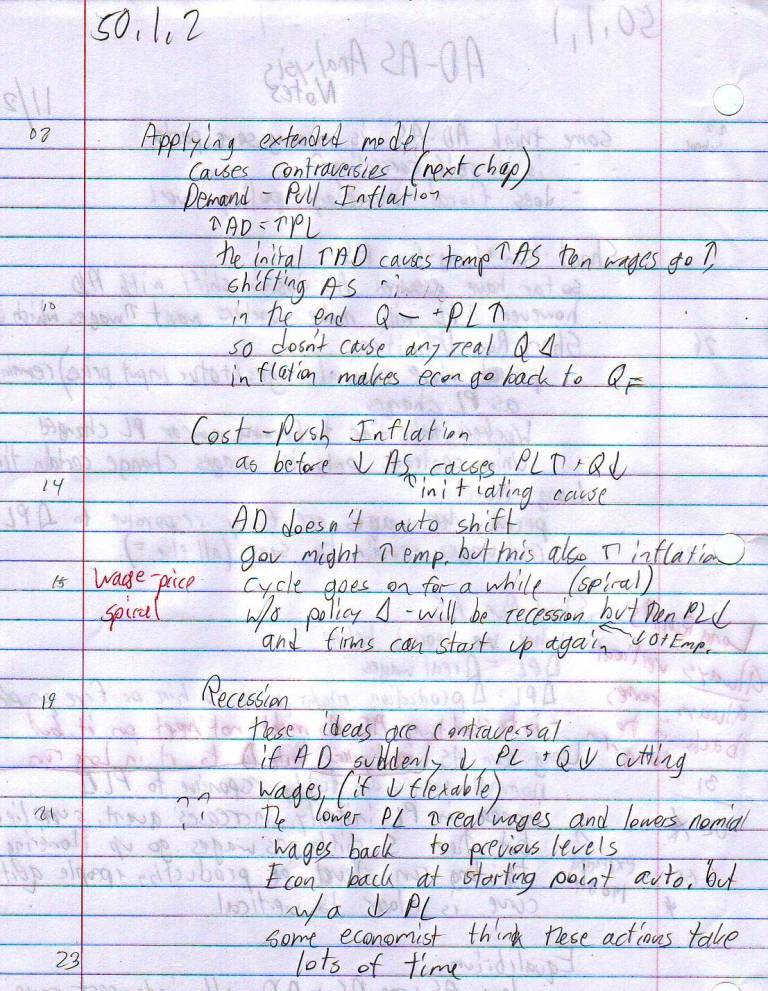 50.1.2
02 Applying extended model
causes contraversies (next chap)
Demand - Pull Inflation
↑AD = ↑PL
the inital ↑AD causes temp ↑AS then wages go ↑,
shifting AS
10 in the end Q — + PL ↑
so dosn't cause any real Q Δ
inflation makes econ go back to QF
Cost-Push Inflation
as before ↓ AS causes PL↑ + Q↓
14 ↑initiating cause
AD doesn't auto shift
gov might ↑ emp. but this also ↑ inflation
15 Wage-price cycle goes on for a while (spiral)
spiral w/o policy Δ - will be recession but then PL↓
and firms can start up again ↓O+Emp.
19 Recession
these ideas are contraversal
if AD suddenly ↓ PL + Q↓ cutting
wages, (if ↓ flexable)
21 ?? the lower PL ↑real wages and lowers nomial
wages back to previous levels
Econ back at starting point auto. but
w/a ↓ PL
some economist think these actions take
23 lots of time